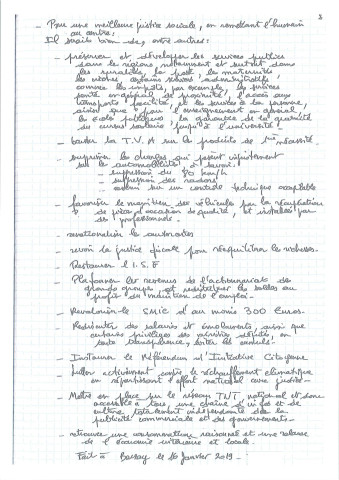 3
- Pour une meilleure justice sociale, en remettant l'humain
au centre:
Il serait bien de, entre autres:
- préserver et développer les services publics
dans les régions, notamment et surtout dans
les ruralités, la poste, les maternités
les écoles, certains services administratifs
comme les impôts, par exemple, les services
santé en hôpital de proximité, l'accès aux
transports facilité, et les services à la personne,
ainsi que pour l'enseignement en général
les écoles publiques, la garantie de la gratuité
du cursus scolaire jusqu'à l'université!
- baisser la T.V.A sur les produits de 1ère nécessité.
- supprimer les charges qui pèsent injustement
sur les automobilistes à savoir:
- suppression du 80 km/h
- suppression des radars
- revenir sur un contrôle technique acceptable
- favoriser le maintien des véhicules par la récupération
de pièces d'occasion de qualité, et installées par
des professionnels.
- renationaliser les autoroutes
- revoir la justice fiscale pour rééquilibrer les richesses.
- Restaurer l'I.S.F
- Plafonner les revenus de l'actionnariat des
grands groupes et redistribuer les soldes au
profit de l'industrie de l'emploi.
- Revaloriser le SMIC d'au moins 300 Euros.
- Redéfinir des salaires et émoluments, ainsi que
certains privilèges des ministres, députés, en
toute transparence, éviter les cumuls!
- Instaurer le Référendum d'Initiative Citoyenne
- Lutter activement contre le réchauffement climatique
en répartissant l'effort national avec justice.
- Mettre en place sur le réseau TNT national et donc
accessible à tous, une chaîne d'infos et de
culture totalement indépendante de la
publicité commerciale et des gouvernements.
- retrouver une consommation raisonnée et une relance
de l'économie intérieure et locale.
Fait à le 16 janvier 2019.